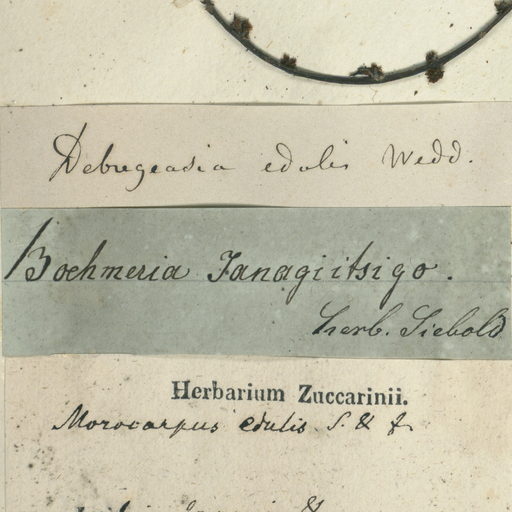 Debregeasia edulis Wedd.
Boehmeria Janagiitsigo.
herb. Siebold
Herbarium Zuccarinii.
Morocarpus edulis S. & Z.